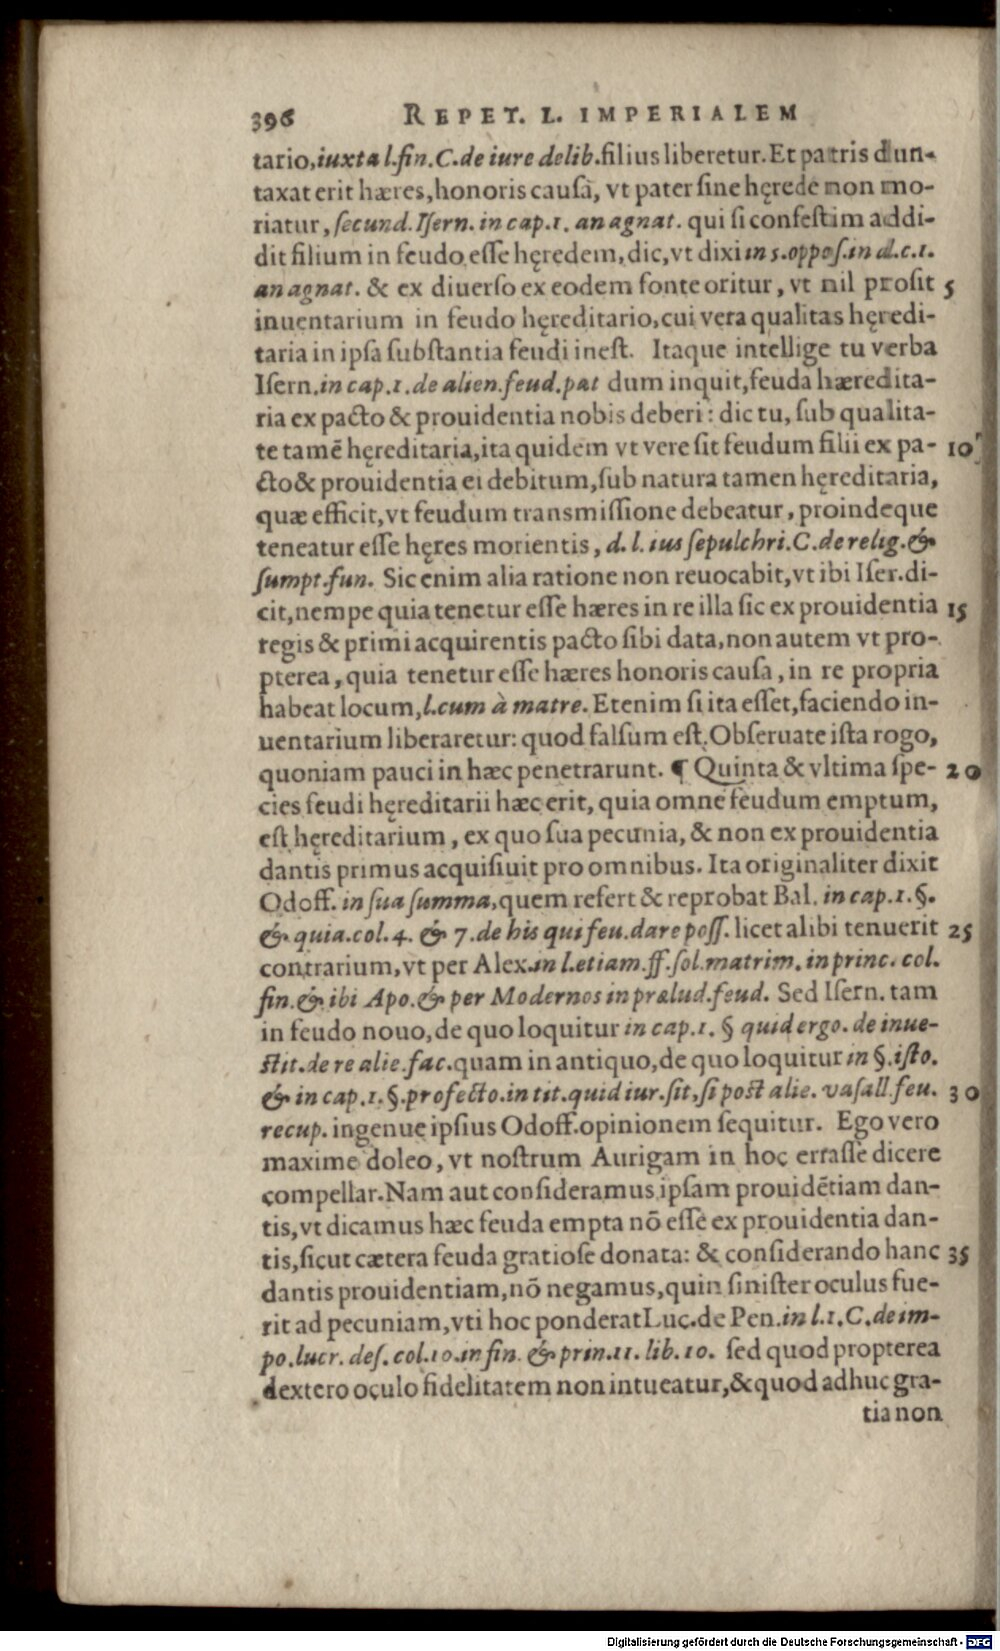 396 REPET. L. IMPERIALEM
tario, iuxta l. fin. C. de iure delib. filius liberetur. Et patris dun-
taxat erit hæres, honoris causa, vt pater sine hęrede non mo-
riatur, secund. Isern. in cap. 1. an agnat. qui si confestim addi-
dit filium in feudo esse hęredem, dic, vt dixi in 5. oppos. in d. c. 1.
an agnat. & ex diuerso ex eodem fonte oritur, vt nil prosit 5
inuentarium in feudo hęreditario, cui vera qualitas hęredi-
taria in ipsa substantia feudi inest. Itaque intellige tu verba
Isern. in cap. 1. de alien. feud. pat dum inquit, feuda hæredita-
ria ex pacto & prouidentia nobis deberi: dic tu, sub qualita-
te tamē hęreditaria, ita quidem vt vere sit feudum filii ex pa- 10
cto & prouidentia ei debitum, sub natura tamen hęreditaria,
quæ efficit, vt feudum transmissione debeatur, proindeque
teneatur esse hęres morientis, d. l. ius sepulchri. C. de relig. &
sumpt. fun. Sic enim alia ratione non reuocabit, vt ibi Iser. di-
cit, nempe quia tenetur esse hæres in re illa sic ex prouidentia 15
regis & primi acquirentis pacto sibi data, non autem vt pro-
pterea, quia tenetur esse hæres honoris causa, in re propria
habeat locum, l. cum à matre. Etenim si ita esset, faciendo in-
uentarium liberaretur: quod falsum est. Obseruate ista rogo,
quoniam pauci in hæc penetrarunt. ¶ Quinta & vltima spe- 20
cies feudi hęreditarii hæc erit, quia omne feudum emptum,
est hęreditarium, ex quo sua pecunia, & non ex prouidentia
dantis primus acquisiuit pro omnibus. Ita originaliter dixit
Odoff. in sua summa, quem refert & reprobat Bal. in cap. 1. §.
& quia. col. 4. & 7. de his qui feu. dare poss. licet alibi tenuerit 25
contrarium, vt per Alex. in l. etiam. ff. sol. matrim. in princ. col.
fin. & ibi Apo. & per Modernos in prælud. feud. Sed Isern. tam
in feudo nouo, de quo loquitur in cap. 1. § quid ergo. de inue-
stit. de re alie. fac. quam in antiquo, de quo loquitur in §. isto.
& in cap. 1. §. profecto. in tit. quid iur. sit, si post alie. vasall. feu. 30
recup. ingenue ipsius Odoff. opinionem sequitur. Ego vero
maxime doleo, vt nostrum Aurigam in hoc errasse dicere
compellar. Nam aut consideramus ipsam prouidētiam dan-
tis, vt dicamus hæc feuda empta nō esse ex prouidentia dan-
tis, sicut cætera feuda gratiose donata: & considerando hanc 35
dantis prouidentiam, nō negamus, quin sinister oculus fue-
rit ad pecuniam, vti hoc ponderat Luc. de Pen. in l. 1. C. de im-
po. lucr. des. col. 10. in fin. & prin. 11. lib. 10. sed quod propterea
dextero oculo fidelitatem non intueatur, & quod adhuc gra-
tia non
Digitalisierung gefördert durch die Deutsche Forschungsgemeinschaft - DFG